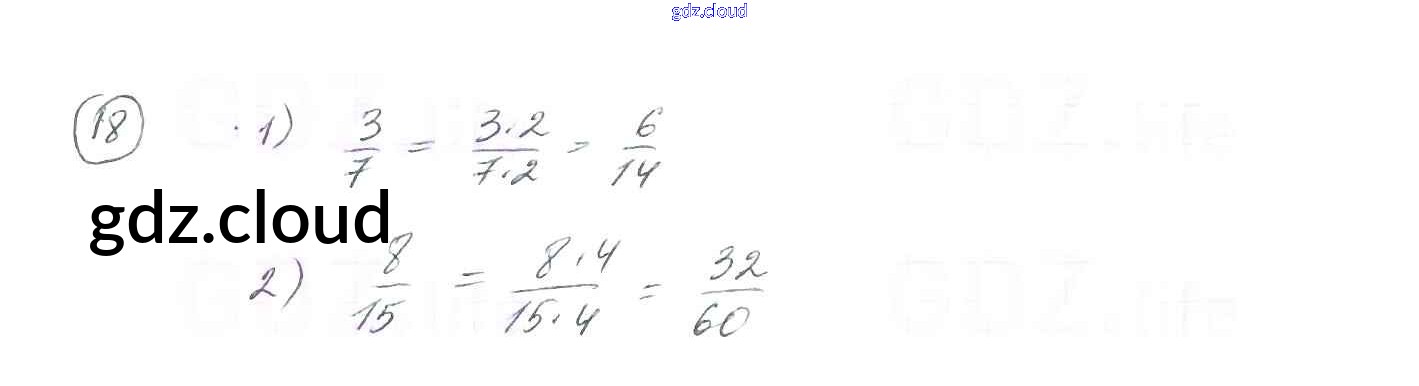 gdz.cloud
18 1) 3/7 = 3·2/7·2 = 6/14
gdz.cloud
2) 8/15 = 8·4/15·4 = 32/60
GDZ.life GDZ.life
GDZ.life GDZ.life